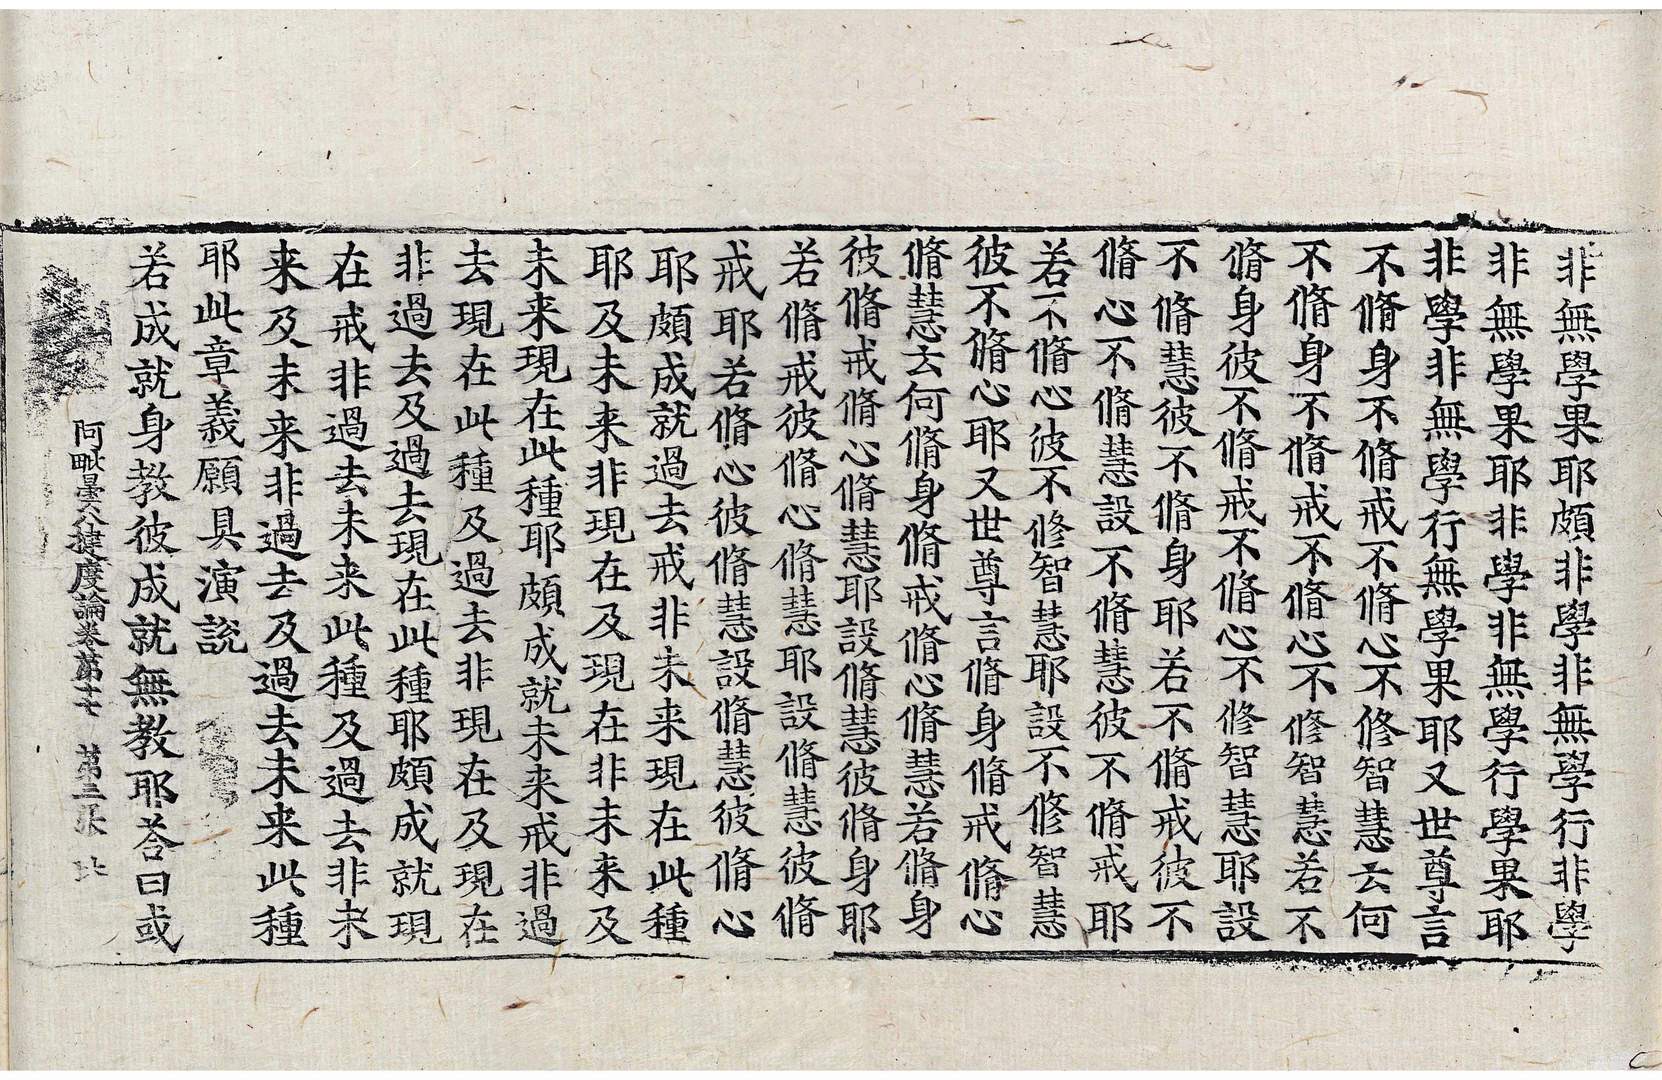 非無學果耶頗非學非無學行非學
非無學果耶非學非無學行學果耶
非學非無學行無學果耶又世尊言
不脩身不脩戒不脩心不修智慧云何
不脩身不脩戒不脩心不修智慧若不
脩身彼不脩戒不脩心不修智慧耶設
不脩慧彼不脩身耶若不脩戒彼不
脩心不脩慧設不脩慧彼不脩戒耶
若不脩心彼不修智慧耶設不修智慧
彼不脩心耶又世尊言脩身脩戒脩心
脩慧云何脩身脩戒脩心脩慧若脩身
彼脩戒脩心脩慧耶設脩慧彼脩身耶
若脩戒彼脩心脩慧耶設脩慧彼脩
戒耶若脩心彼脩慧設脩慧彼脩心
耶頗成就過去戒非未来現在此種
耶及未来非現在及現在非未来及
未来現在此種耶頗成就未来戒非過
去現在此種及過去非現在及現在
非過去及過去現在此種耶頗成就現
在戒非過去未来此種及過去非未
来及未来非過去及過去未来此種
耶此章義願具演說
若成就身教彼成就無教耶荅曰或
阿毗曇八揵度論卷第十七 第三張